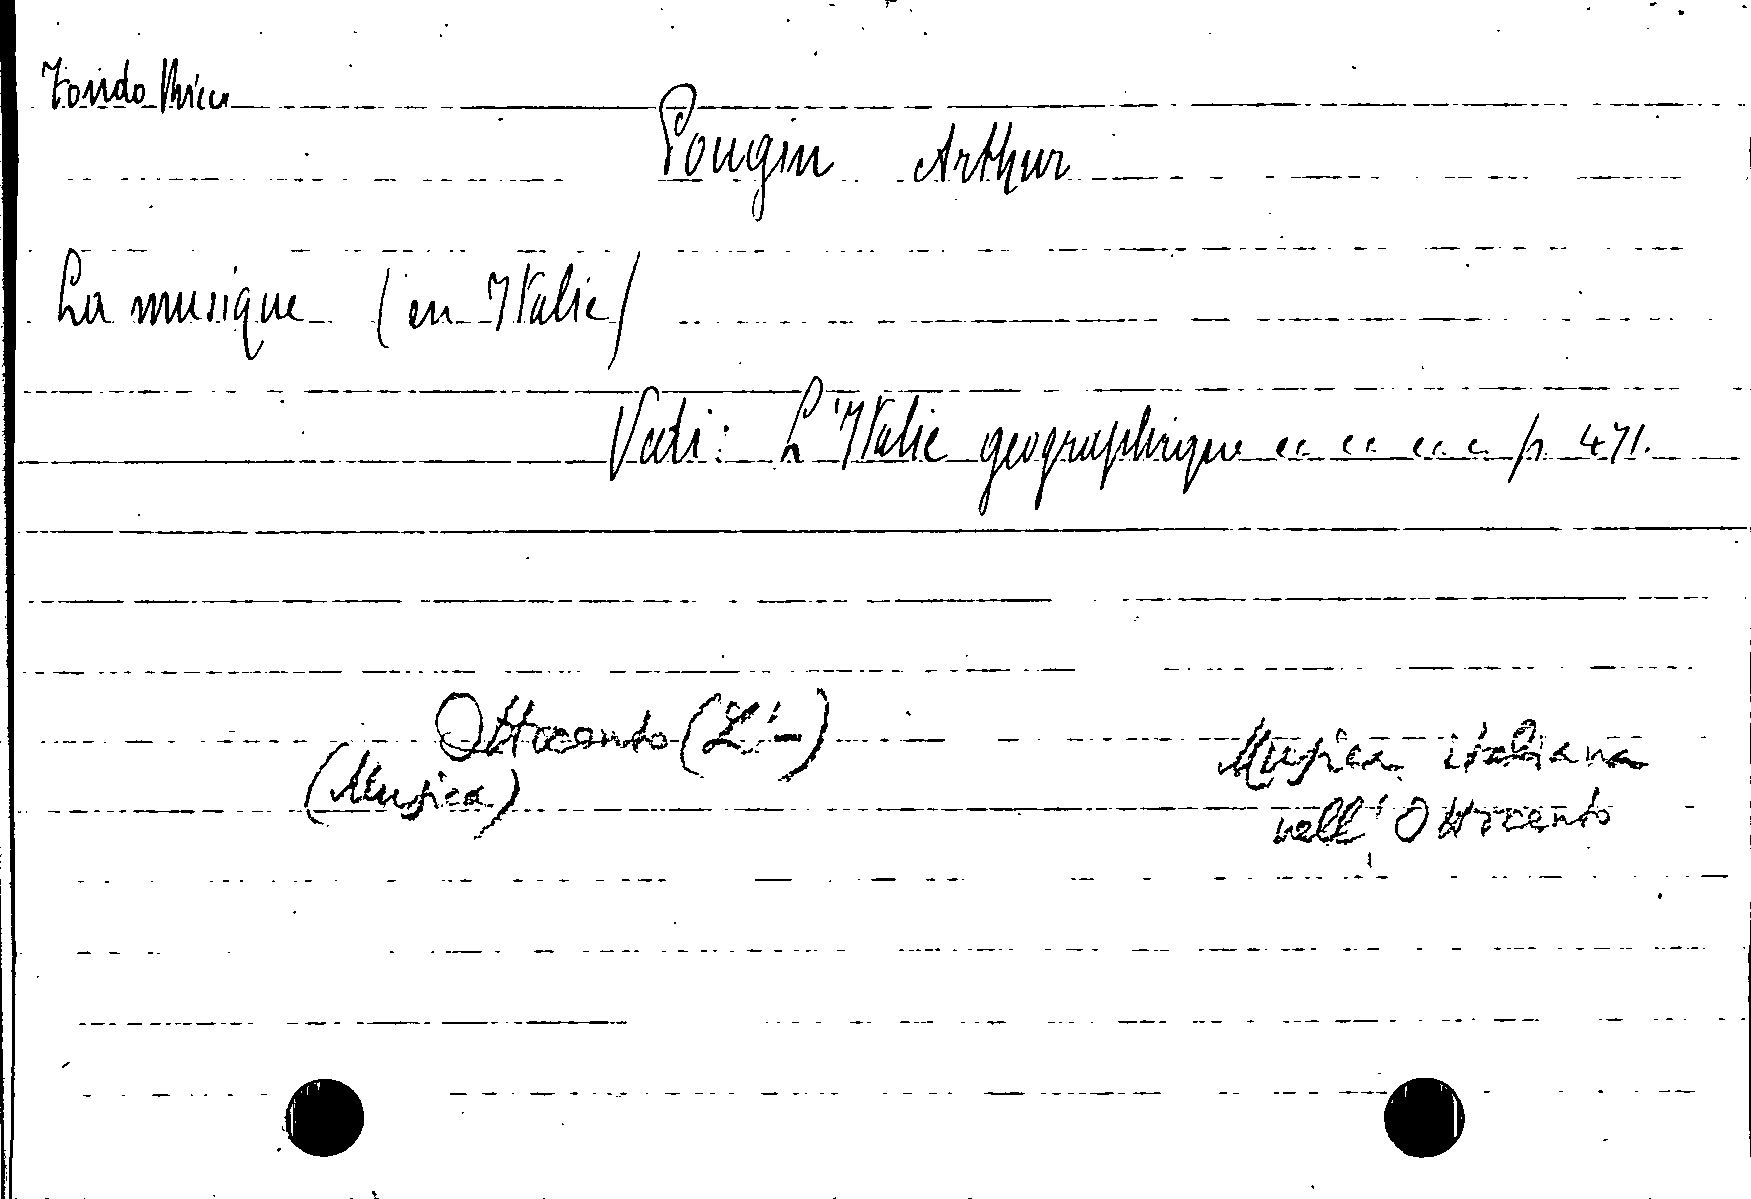 Fondo
Pougin Arthur
La musique (en Italie)
Vedi: L'Italie geographique ecc ecc ecc p. 471.
Ottocento (L'-)
(Musica)
Musica italiana
nell'Ottocento